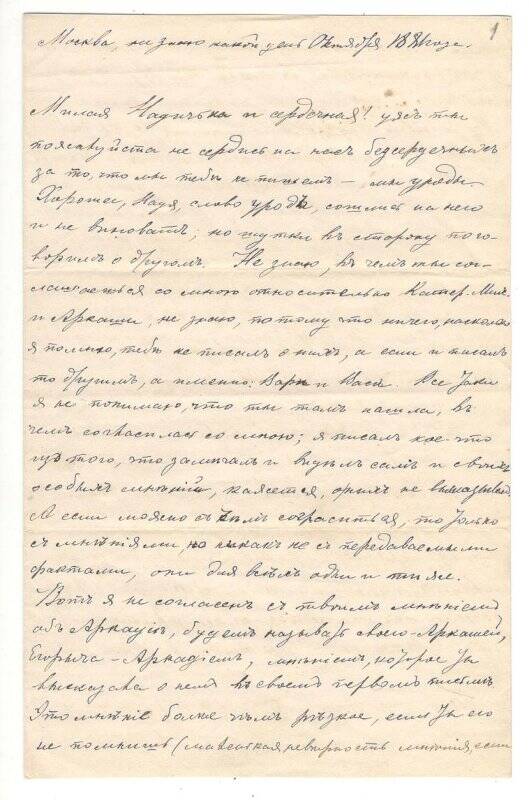 1
Москва, не знаю какой день Октября 188 года.
Милая Надичька и сердечная! ужъ ты
пожалуйста не сердись на насъ безсердечныхъ
за то, что мы тебѣ не пишемъ — мы уроды.
Хорошее, Надя, слово уродъ, сошлись на него
и не виноватъ; но шутки въ сторону пого-
воримъ о другомъ. Не знаю, въ чемъ ты сог-
лашаешься со мною относительно Катер. Мих.
и Аркаши, не знаю, потому что ничего, насколько
я помню, тебѣ не писалъ о нихъ, а если и писалъ
то другимъ, а именно: Варѣ и Васѣ. Все таки
я не понимаю, что ты тамъ нашла, въ
чемъ согласилась со мною; я писалъ кое-что
изъ того, что замѣчалъ и видѣлъ самъ и своихъ
особыхъ мнѣній, кажется, о нихъ не высказывалъ.
А если можно съ чѣмъ согласиться, то только
съ мнѣніями, но никакъ не съ передаваемыми
фактами, они для всѣхъ одни и тѣ же.
Вотъ я не согласенъ съ твоимъ мнѣніемъ
объ Аркадіѣ, будемъ называть своего - Аркашей,
Егорыча - Аркадіемъ, мнѣніемъ, которое ты
высказала о немъ въ своемъ первомъ письмѣ.
Это мнѣніе болѣе чѣмъ рѣзкое, если ты его
не помнишь (маленькая невѣрность мнѣнія, если